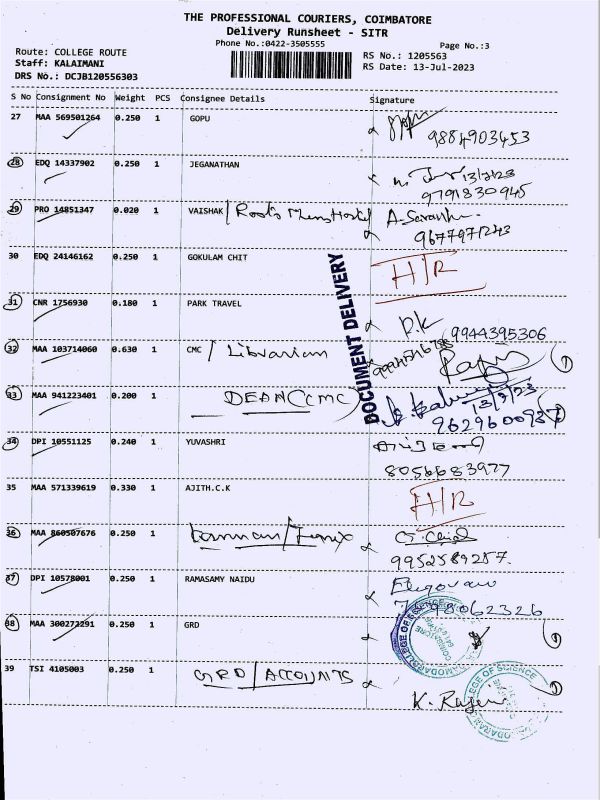 THE PROFESSIONAL COURIERS, COIMBATORE
Delivery Runsheet - SITR
Phone No.:0422-3505555
Page No.:3
Route: COLLEGE ROUTE
RS No.: 1205563
Staff: KALAIMANI
RS Date: 13-Jul-2023
DRS No.: DCJB120556303
S No Consignment No Weight PCS Consignee Details Signature
27 MAA 569501264 0.250 1 GOPU
9884903453
28 EDQ 14337902 0.250 1 JEGANATHAN
9791830945
29 PRO 14851347 0.020 1 VAISHAK
9677971243
30 EDQ 24146162 0.250 1 GOKULAM CHIT H/R
31 CNR 1756930 0.180 1 PARK TRAVEL P.K
9944395306
32 MAA 103714060 0.630 1 CMC / Librarian
DOCUMENT DELIVERY
33 MAA 941223401 0.200 1 DEAN (CMC)
13/7/23
34 DPI 10551125 0.240 1 YUVASHRI
8056683977
35 MAA 571339619 0.330 1 AJITH.C.K H/R
36 MAA 860507676 0.250 1
9952589257.
37 DPI 10578001 0.250 1 RAMASAMY NAIDU
38 MAA 300272291 0.250 1 GRD
COLLEGE OF SCIENCE
COIMBATORE
39 TSI 4105003 0.250 1 GRD / ACCOUNTS
COLLEGE OF SCIENCE